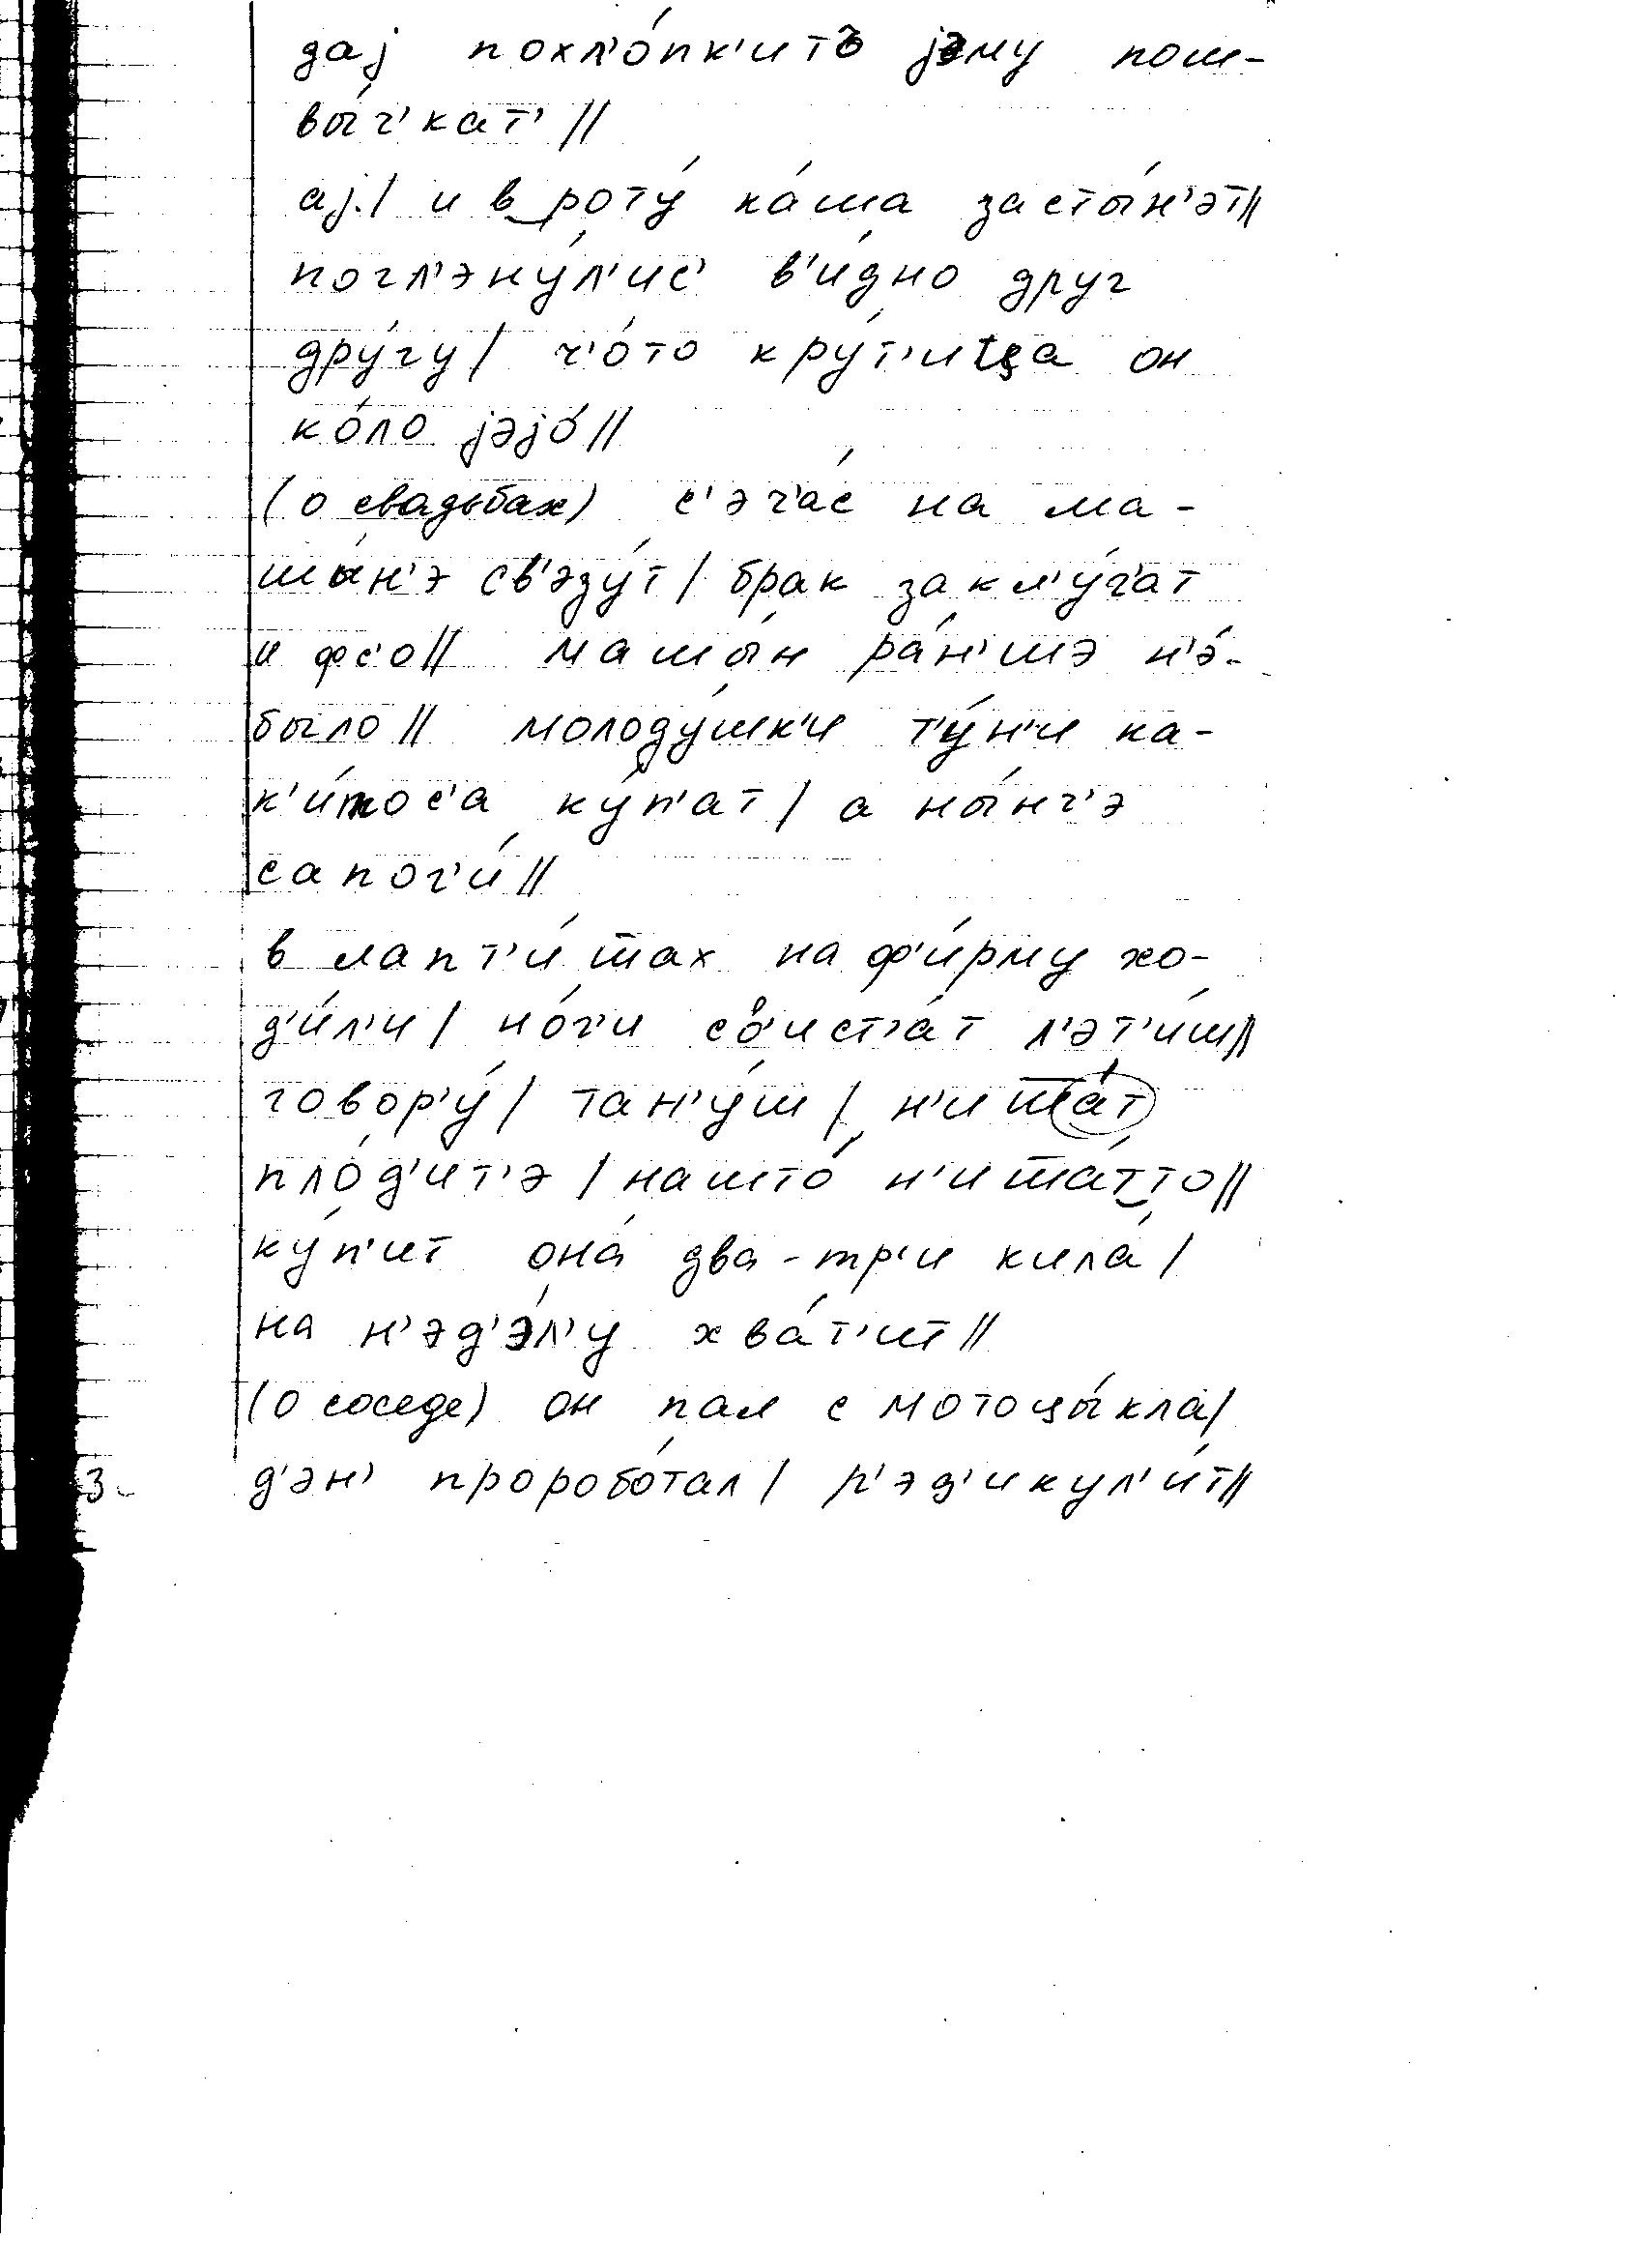 дај похл'о́пк'итъ јэму пош-
вы́ч'кат' //
ај / и в‿роту́ ка́ша засты́н'эт //
погл'эну́л'ис' в'и́дно друг
дру́гу / ч'о́то кру́т'ица он
ко́ло јэјо́ //
(о свадьбах) с'эч'а́с на ма-
шы́н'э св'эзу́т / брак закл'у́ч'ат
и фс'о // машы́н ра́н'шэ н'э́-
было // молоду́шк'и т'у́н'и ка-
к'и́тос'а ку́п'ат / а ны́нч'э
сапог'и́ //
в лапт'и́ш̅ах на ф'и́рму хо-
д'и́л'и / но́г'и св'ист'а́т л'эт'и́ш //
говор'у́ / тан'у́ш / н'иш̅а́т
пло́д'ит'э / нашто́ н'иш̅а́т‿то //
ку́п'ит она́ два-тр'и кила́ /
на н'эд'э́л'у хва́т'ит //
(о соседе) он пал с мотоцы́кла /
д'эн' проробо́тал / р'эд'икул'и́т //
3-